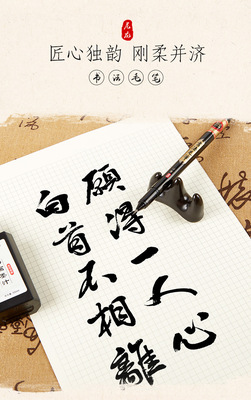 匠心独韵 刚柔并济
书法毛笔
願得一人心
白首不相離